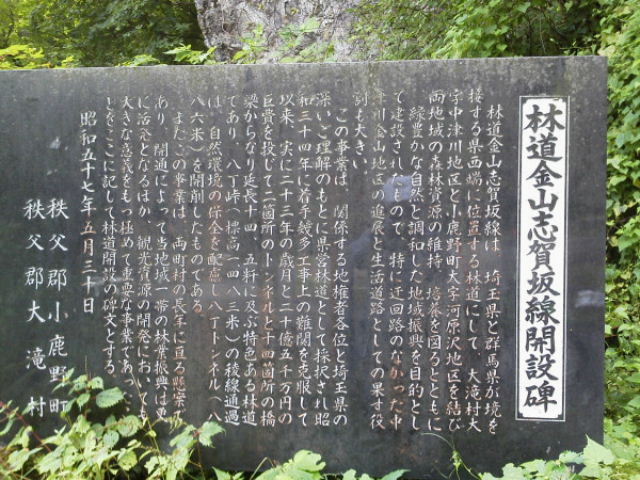 林道金山志賀坂線開設碑
林道金山志賀坂線は、埼玉県と群馬県が境を
接する県西端に位置する林道にして、大滝村大
字中津川地区と小鹿野町大字河原沢地区を結び
両地域の森林資源の維持、培養を図るとともに
緑豊かな自然と調和した地域振興を目的とし
て建設されたもので、特に迂回路のなかった中
津川金山地区の進展と生活道路としての果す役
割も大きい。
この事業は、関係する地権者各位と埼玉県の
深いご理解のもとに県営林道として採択され昭
和三十四年に着手幾多工事上の難関を克服して
以来、実に二十三年の歳月と二十億五千万円の
巨費を投じて二箇所のトンネルと十四箇所の橋
梁からなり延長十四、五粁に及ぶ特色ある林道
であり、八丁峠(標高一四八三米)の稜線通過
は、自然環境の保全を配慮し八丁トンネル(八
八六米)を開削したものである。
またこの事業は、両町村の長年に亘る懸案で
あり、開通によって当地域一帯の林業振興は更
に活発となるほか、観光資源の開発においても
大きな意義をもつ極めて重要な事業であったこ
とをここに記して林道開設の碑文とする。
昭和五十七年五月三十日
秩父郡小鹿野町
秩父郡大滝村